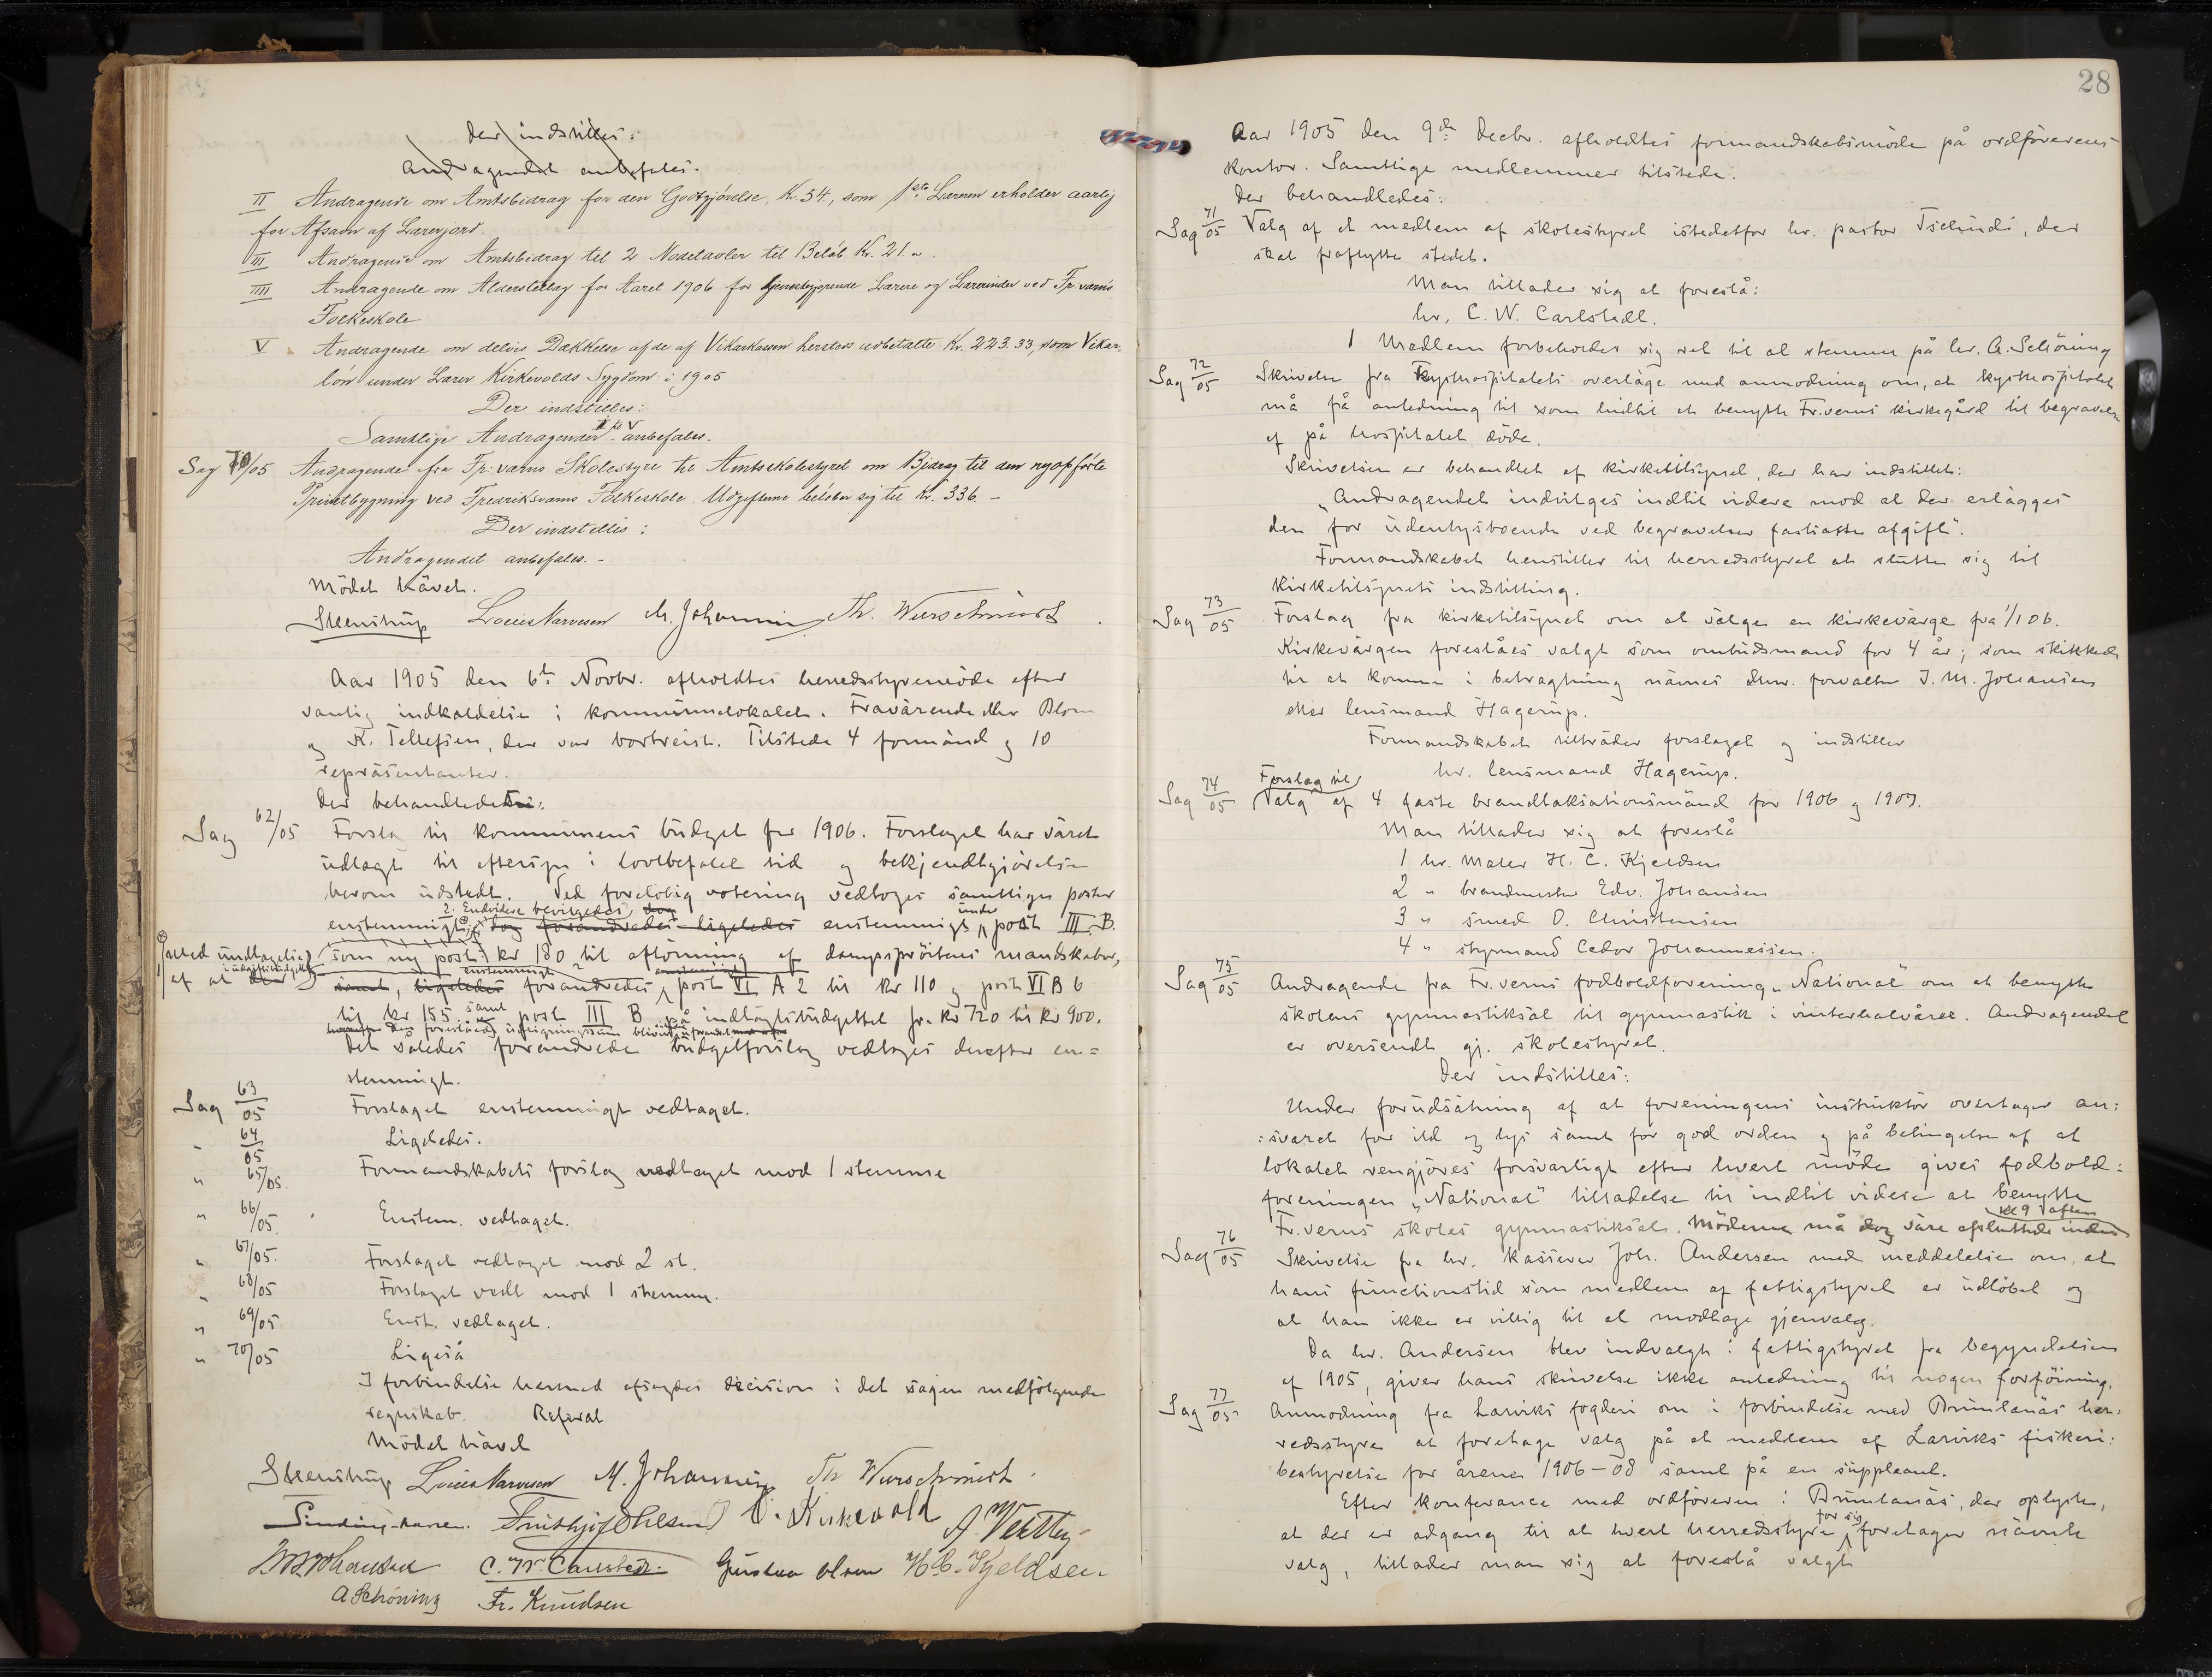 Der indstilles:
Andragendet anbefales.
II Andragende om Amtsbidrag for den Godtgjørelse, Kr. 54, som 1ste Læreren erholder aarlig
for Afsavn af Lærerjord.
III Andragende om Amtsbidrag til 2 Nodetavler til Beløb Kr. 21.
IIII Andragende om Alderstillæg for Aaret 1906 for tjenestgjørende Lærere og Lærerinder ved Fr.værns
Folkeskole
V Andragende om delvis Dækkelse af de af Vikarkassen hersteds udbetalte Kr. 223.33, som Vikar-
løn under Lærer Kirkevolds Sygdom i 1905
Der indstilles:
Samtlige Andragender I til V anbefales.
Sag 70/05 Andragende fra Fr.værns Skolestyre til Amtsskolestyret om Bidrag til den nyopførte
Privetbygning ved Fredriksværns Folkeskole. Udgifterne beløber sig til Kr. 336.-
Der indstilles:
Andragendet anbefales.-
Mödet hävet.
Steenstrup Louis Narvesen M. Johannsen Th. Wurschmidt
Aar 1905 den 6te Novbr. afholdtes herredsstyremöde efter
vanlig indkaldelse i kommunelokalet. Fraværende dhr Blom
og K. Tellefsen, der var bortreist. Tilstede 4 formänd og 10
repräsentanter.
Der behandledes:
Sag 62/05 Forslag til kommunens budget for 1906. Forslaget har väret
udlagt til eftersyn i lovbefalet tid og bekjendtgjörelse
herom udstedt. Ved forelöbig votering vedtoges samtlige poster
2. Endvidere bevilgedes dog under
enstemmigt, dog forandredes ligeledes enstemmigt post III B.
med undtagelse som ny post: kr 180 til aflönning af dampspröitens mandskaber,
i udgiftsbudgettet enstemmigt enstemmigt
af at der samt, ligeledes forandredes post VI A 2 til kr 110 og post VI B 6
til kr 155 samt post III B på indtägtsbudgettet fra kr 720 til kr 900.
Det således forandrede budgetforslag vedtoges derefter en=
stemmigt.
Sag 63/05 Forslaget enstemmigt vedtaget.
" 64/05 Ligeledes.
" 65/05. Formandskabets forslag vedtaget mod 1 stemme
" 66/05. Enstem. vedtaget.
" 67/05. Forslaget vedtaget mod 2 st.
" 68/05 Forslaget vedt mod 1 stemme.
" 69/05 Enst. vedtaget.
" 70/05 Ligeså
I forbindelse hermed afsagdes decision i det sagen medfölgende
regnskab. Referat
Mödet hävet
Steenstrup Louis Narvesen M. Johannsen Th Wurschmidt
Frithjof Ohlsen O. Kirkevold
C. W. Carlstedt. Gustav Olsen H. C. Kjeldsen
A Schöning Fr. Knudsen
28
Aar 1905 den 9de Decbr. afholdtes formandskabsmöde på ordförerens
kontor. Samtlige medlemmer tilstede.
Der behandledes:
Sag 71/05 Valg af et medlem af skolestyret istedetfor hr. pastor Tschudi, der
skal fraflytte stedet.
Man tillader sig at foreslå:
hr. C. W. Carlstedt.
1 Medlem forbeholder sig ret til at stemme på hr. A. Schöning
Sag 72/05 Skrivelse fra Kysthospitalets overläge med anmodning om, at kysthospitalet
må få anledning til som hidtil at benytte Fr.verns kirkegård til begravelse
af på hospitalet döde.
Skrivelsen er behandlet af kirketilsynet, der har indstillet:
„Andragendet indvilges indtil videre mod at der erlägges
den for udenbysboende ved begravelser fastsatte afgift".
Formandskabet henstiller til herredsstyret at slutte sig til
kirketilsynets indstilling.
Sag 73/05 Forslag fra kirketilsynet om at välge en kirkevärge fra 1/1 06.
Kirkevärgen foreslåes valgt som ombudsmand for 4 år; som skikkede
til at komme i betragtning nävnes dhrr. forvalter J. M. Johansen
eller lensmand Hagerup.
Formandskabet tilträder forslaget og indstiller
hr. lensmand Hagerup.
Sag 74/05 Forslag til Valg af 4 faste brandtakstationsmänd for 1906 og 1907.
Man tillader sig at foreslå
1 hr. Maler H. C. Kjeldsen
2 " brandmester Edv. Johansen
3 " smed O. Christensen
4 " styrmand Cedor Johannessen.
Sag 75/05 Andragende fra Fr.verns fodboldforening „National" om at benytte
skolens gymnastiksal til gymnastik i vinterhalvåret. Andragendet
er oversendt gj. skolestyret.
Der indstilles:
Under forudsätning af at foreningens instruktör overtager an=
=svaret for ild og lys samt for god orden og på betingelse af at
lokalet rengjöres forsvarligt efter hvert möde gives fodbold=
foreningen „National" tilladelse til indtil videre at benytte
kl 9 aften
Fr.verns skoles gymnastiksal. Möderne må dog väre afsluttede inden
Sag 76/05 Skrivelse fra hr. kasserer Joh. Andersen med meddelelse om, at
hans functionstid som medlem af fattigstyret er udlöbet og
at han ikke er villig til at modtage gjenvalg.
Da hr. Andersen blev indvalgt i fattigstyret fra begyndelsen
af 1905, giver hans skrivelse ikke anledning til nogen forföining.
Sag 77/05 Anmodning fra Larviks fogderi om i forbindelse med Brunlanäs her=
redsstyre at foretage valg på et medlem af Larviks fiskeri=
bestyrelse for årene 1906-08 samt på en suppleant.
Efter konferance med ordföreren i Brunlanäs, der oplyste,
at der er adgang til at hvert herredsstyre for sig foretager nävnte
valg, tillader man sig at foreslå valgt